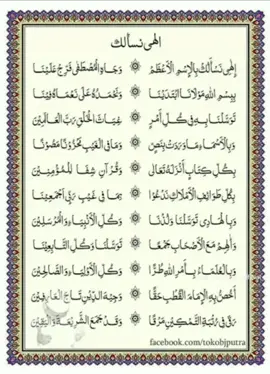 الهي نسألك
إلهي نسألك بالإسم الأعظم وجاه المصطفى فرج علينا
ببسم الله مولانا ابتدينا ونحمده على نعماه فينا
توسلنا به في كل أمر غياث الخلق رب العالمين
وبالأسماء ما وردت بنص وما في الغيب مخزونا مصونا
بكل كتاب أنزله تعالى وقرآن شفا للمؤمنين
بكل طوائف الأملاك ندعو بما في غيب ربي أجمعينا
وبالهادي توسلنا ولذنا وكل الأنبياء والمرسلين
وآلهم مع الأصحاب جمعا توسلنا وكل التابعينا
وبالعلماء بأمر الله طرا وكل الأولياء والصالحين
أخص به الإمام القطب حقا وجيه الدين تاج العارفين
رقى في رتبة التمكين مرقا وقد جمع الشريعة واليقين
facebook.com/tokobjputra